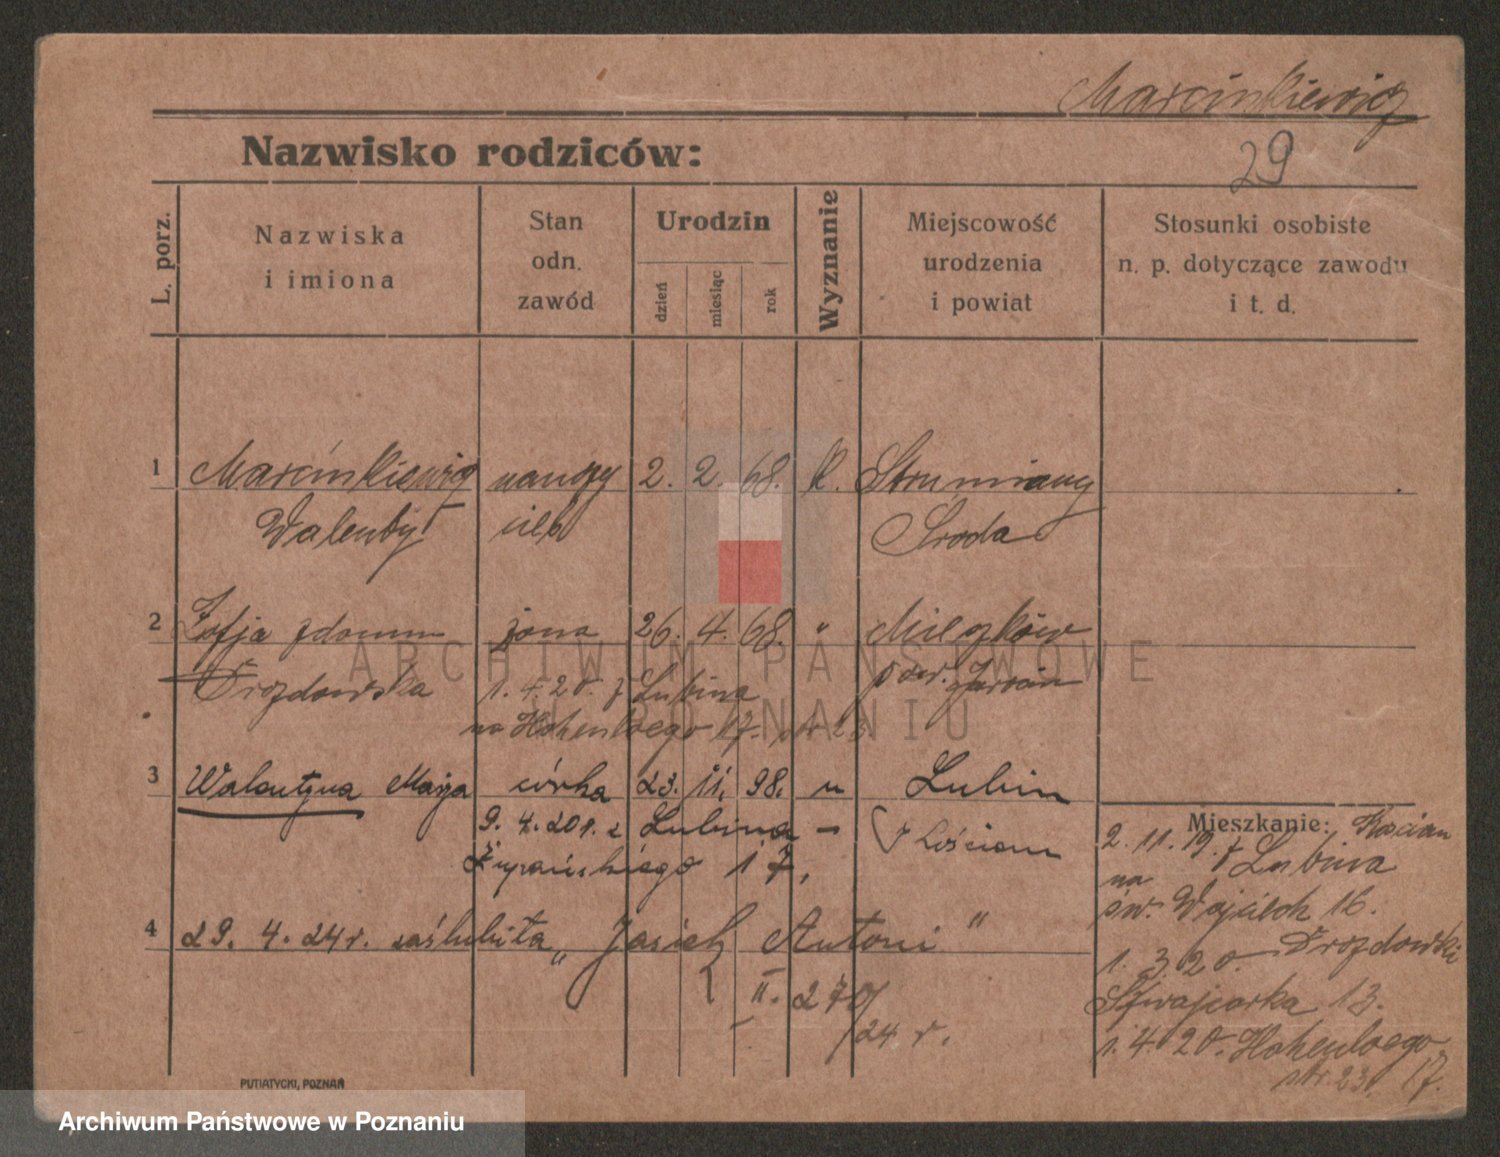 Marcinkiewicz
29
Nazwisko rodziców:
L. porz.
Nazwiska
i imiona
Stan
odn.
zawód
Urodzin
dzień
miesiąc
rok
Wyznanie
Miejscowość
urodzenia
i powiat
Stosunki osobiste
n. p. dotyczące zawodu
i t. d.
1 Marcinkiewicz nauczy 2. 2. 68. K. Strumiany
Walenty ciel Środa
2 Zofja z domu żona 26. 4. 68. " Mieszków
Drozdowska 1.4.20. z Lubina pow. Jarocin
na Hohenloego 17. str 23
3 Walentyna Marja córka 23. 11. 98. " Lubin
9. 4. 20 r. z Lubina - Kościan
Żupańskiego 17.
4 29. 4. 24 r. zaślubiła „Jasiek Antoni"
II. 270/
24 r.
Mieszkanie: Kościan
2. 11. 19. z Lubina
na
św. Wojciech 16.
Drozdowski
1. 3. 20.
Szwajcarska 13.
1. 4. 20. Hohenloego
str. 23. 17.
PUTIATYCKI, POZNAŃ
ARCHIWUM PAŃSTWOWE
W POZNANIU
Archiwum Państwowe w Poznaniu